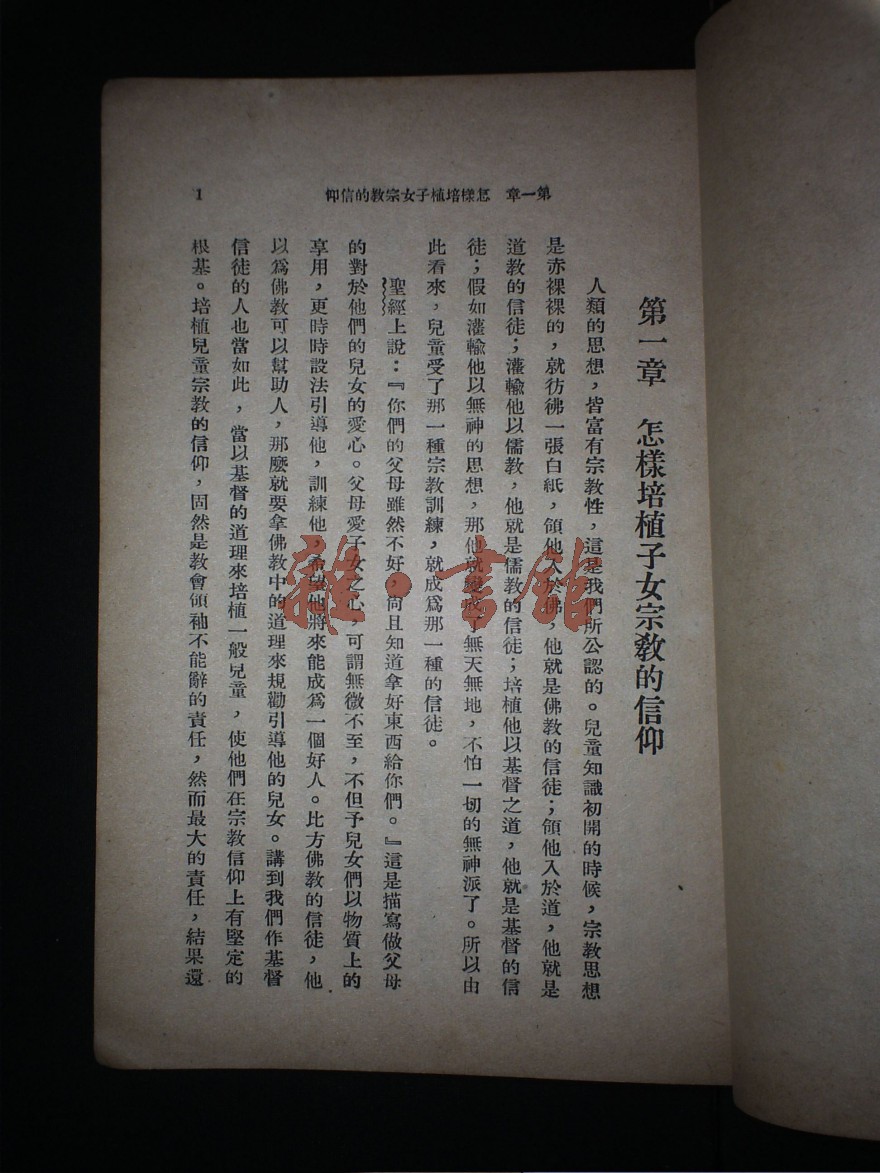 第一章 怎樣培植子女宗教的信仰
1
第一章 怎樣培植子女宗教的信仰
人類的思想，皆富有宗教性，這是我們所公認的。兒童知識初開的時候，宗教思想
是赤裸裸的，就彷彿一張白紙，領他入於佛，他就是佛教的信徒；領他入於道，他就是
道教的信徒；灌輸他以儒教，他就是儒教的信徒；培植他以基督之道，他就是基督的信
徒；假如灌輸他以無神的思想，那他就變成了無天無地，不怕一切的無神派了。所以由
此看來，兒童受了那一種宗教訓練，就成爲那一種的信徒。
聖經上說：『你們的父母雖然不好，尙且知道拿好東西給你們。』這是描寫做父母
的對於他們的兒女的愛心。父母愛子女之心，可謂無微不至，不但予兒女們以物質上的
享用，更時時設法引導他，訓練他，希望他將來能成爲一個好人。比方佛教的信徒，他
以爲佛教可以幫助人，那麽就要拿佛教中的道理來規勸引導他的兒女。講到我們作基督
信徒的人也當如此，當以基督的道理來培植一般兒童，使他們在宗教信仰上有堅定的
根基。培植兒童宗教的信仰，固然是教會領袖不能辭的責任，然而最大的責任，結果還
雜·書館